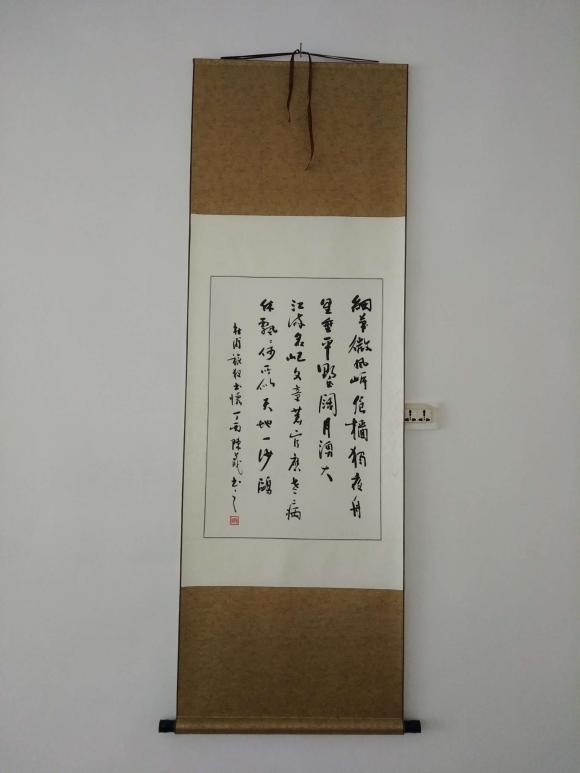 細草微風岸危檣獨夜舟
星垂平野闊月湧大
江流名豈文章著官應老病
休飄〻何所似天地一沙鷗
杜甫旅夜書懷丁酉陳書之